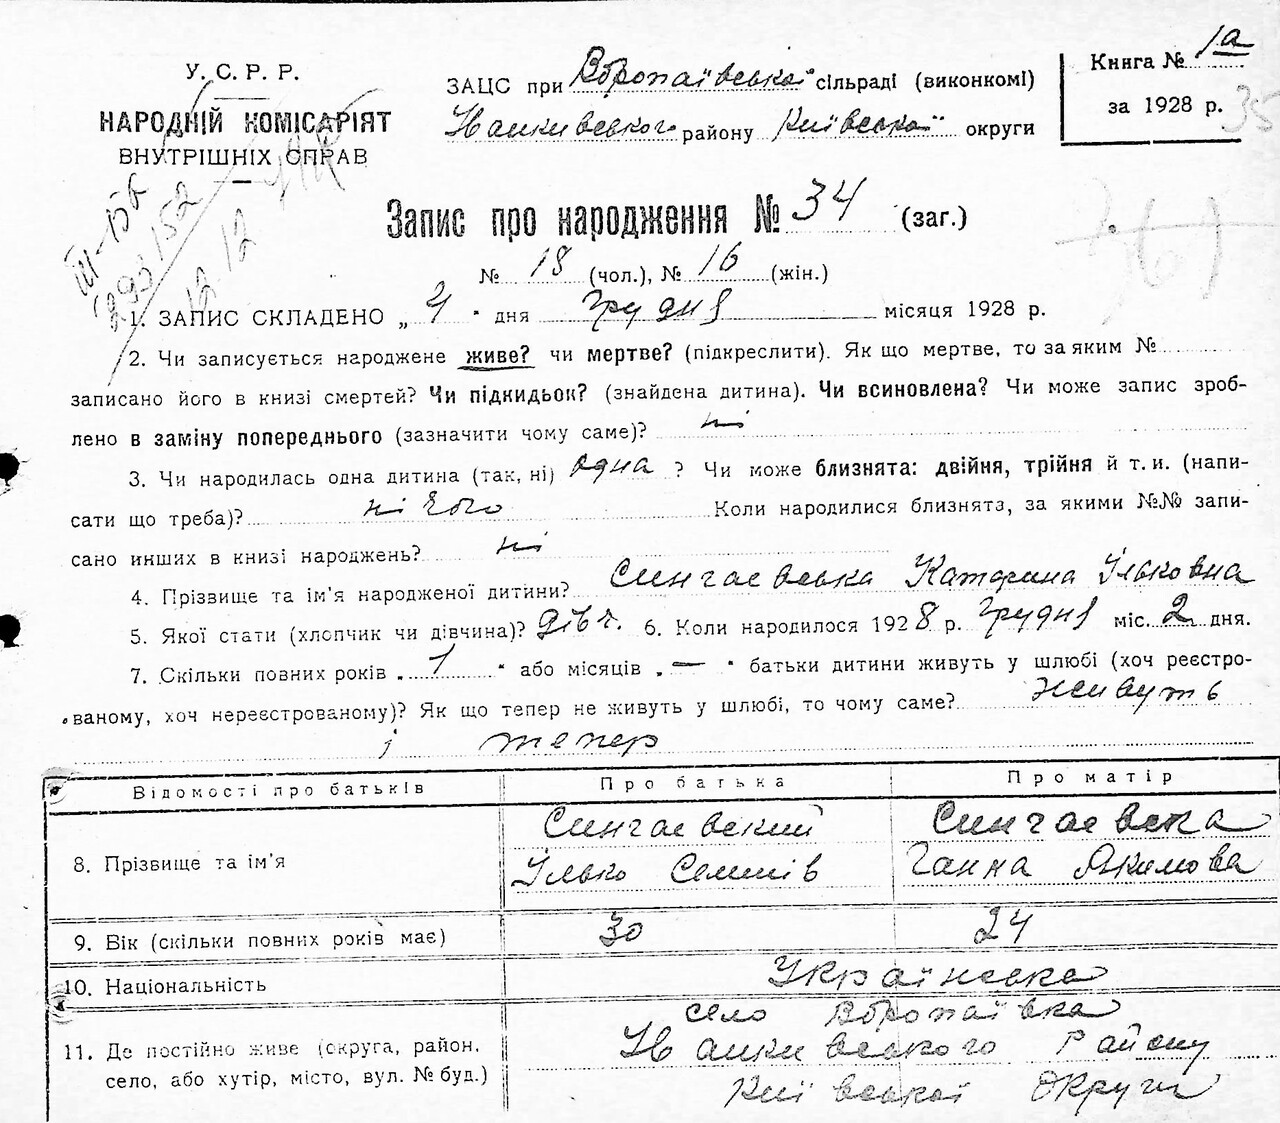 У. С. Р. Р.
НАРОДНІЙ КОМІСАРІЯТ
ВНУТРІШНІХ СПРАВ
ЗАЦС при Воропаївської сільраді (виконкомі)
Іванкивського району Київської округи
Книга № 1а
за 1928 р.
35
III-15б
12 12
Запис про народження № 34 (заг.)
№ 18 (чол.), № 16 (жін.)
1. ЗАПИС СКЛАДЕНО „ 4 " дня Грудня місяця 1928 р.
2. Чи записується народжене живе? чи мертве? (підкреслити). Як що мертве, то за яким №
записано його в книзі смертей? Чи підкидьок? (знайдена дитина). Чи всиновлена? Чи може запис зроб-
лено в заміну попереднього (зазначити чому саме)? ні
3. Чи народилась одна дитина (так, ні) одна ? Чи може близнята: двійня, трійня й т. и. (напи-
сати що треба)? нічого Коли народилися близнята, за якими №№ запи-
сано инших в книзі народжень? ні
4. Прізвище та ім'я народженої дитини? Сингаевська Катерина Ільковна
5. Якої стати (хлопчик чи дівчина)? дівч. 6. Коли народилося 1928 р. Грудня міс. 2 дня.
7. Скільки повних років „ 1 " або місяців „ — " батьки дитини живуть у шлюбі (хоч реєстро-
ваному, хоч нереєстрованому)? Як що тепер не живуть у шлюбі, то чому саме? живуть
і тепер
Відомості про батьків Про батька Про матір
8. Прізвище та ім'я
Сингаевский
Ілько Семенів
Сингаевска
Ганна Якимова
9. Вік (скільки повних років має) 30 24
10. Національність Українська
11. Де постійно живе (округа, район,
село, або хутір, місто, вул. № буд.)
село Воропаївка
Іванкивського Району
Київської Округи